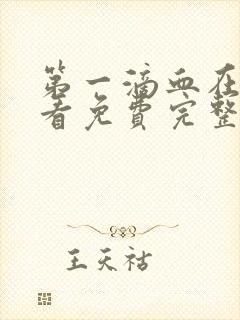 第一滴血在
看免费完整
王天祜